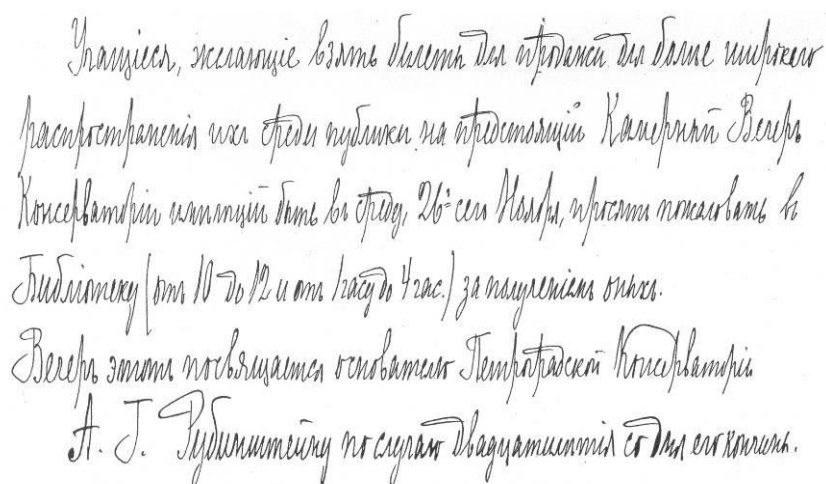 Учащіеся, желающіе взять билеты для продажи для болѣе широкаго
распространенія ихъ среди публики на предстоящій Камерный Вечеръ
Консерваторіи имѣющій быть въ среду, 26го сего Ноября, просятъ пожаловать въ
Библіотеку (отъ 10 до 12 и отъ 1 часу до 4 час.) за полученіемъ оныхъ.
Вечеръ этотъ посвящается основателю Петроградской Консерваторіи
А. Г. Рубинштейну по случаю двадцатилѣтія со дня его кончины.